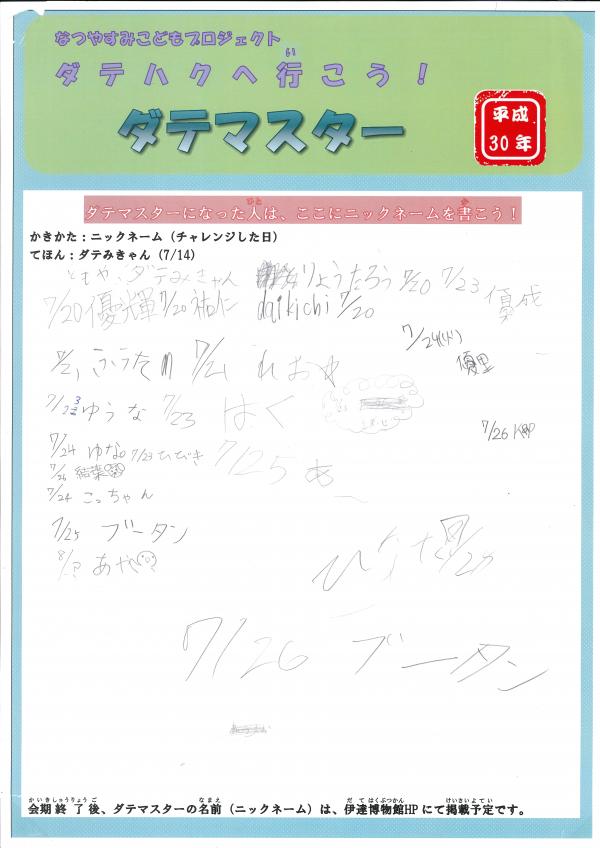 なつやすみこどもプロジェクト
ダテハクへ行こう！
い
ダテマスター
平成
30年
ダテマスターになった人は、ここにニックネームを書こう！
ひと
か
かきかた：ニックネーム（チャレンジした日）
てほん：ダテみきゃん（7/14）
ともや、ダテみきゃん
りょうたろう 7/20 7/23 優成
7/20 優輝 7/20 daikichi 7/20
7/24(火)
優里
7/21 ふうた 7/21 れお
7/23 ゆうな 7/23 はく
7/26
7/24 ゆな。 7/23 ひびき 7/25 あ
7/26 結菜
7/24 こっちゃん
7/25 ブータン
あや
ひなた
7/26 ブータン
会期終了後、ダテマスターの名前（ニックネーム）は、伊達博物館HPにて掲載予定です。
かいきしゅうりょうご
なまえ
だてはくぶつかん
けいさいよてい